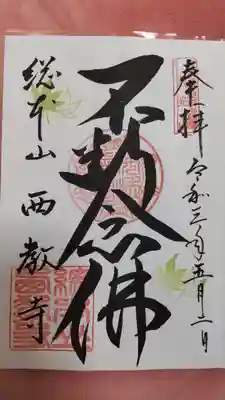 奉拝
令和三年五月二日
不断念佛
総本山
西教寺